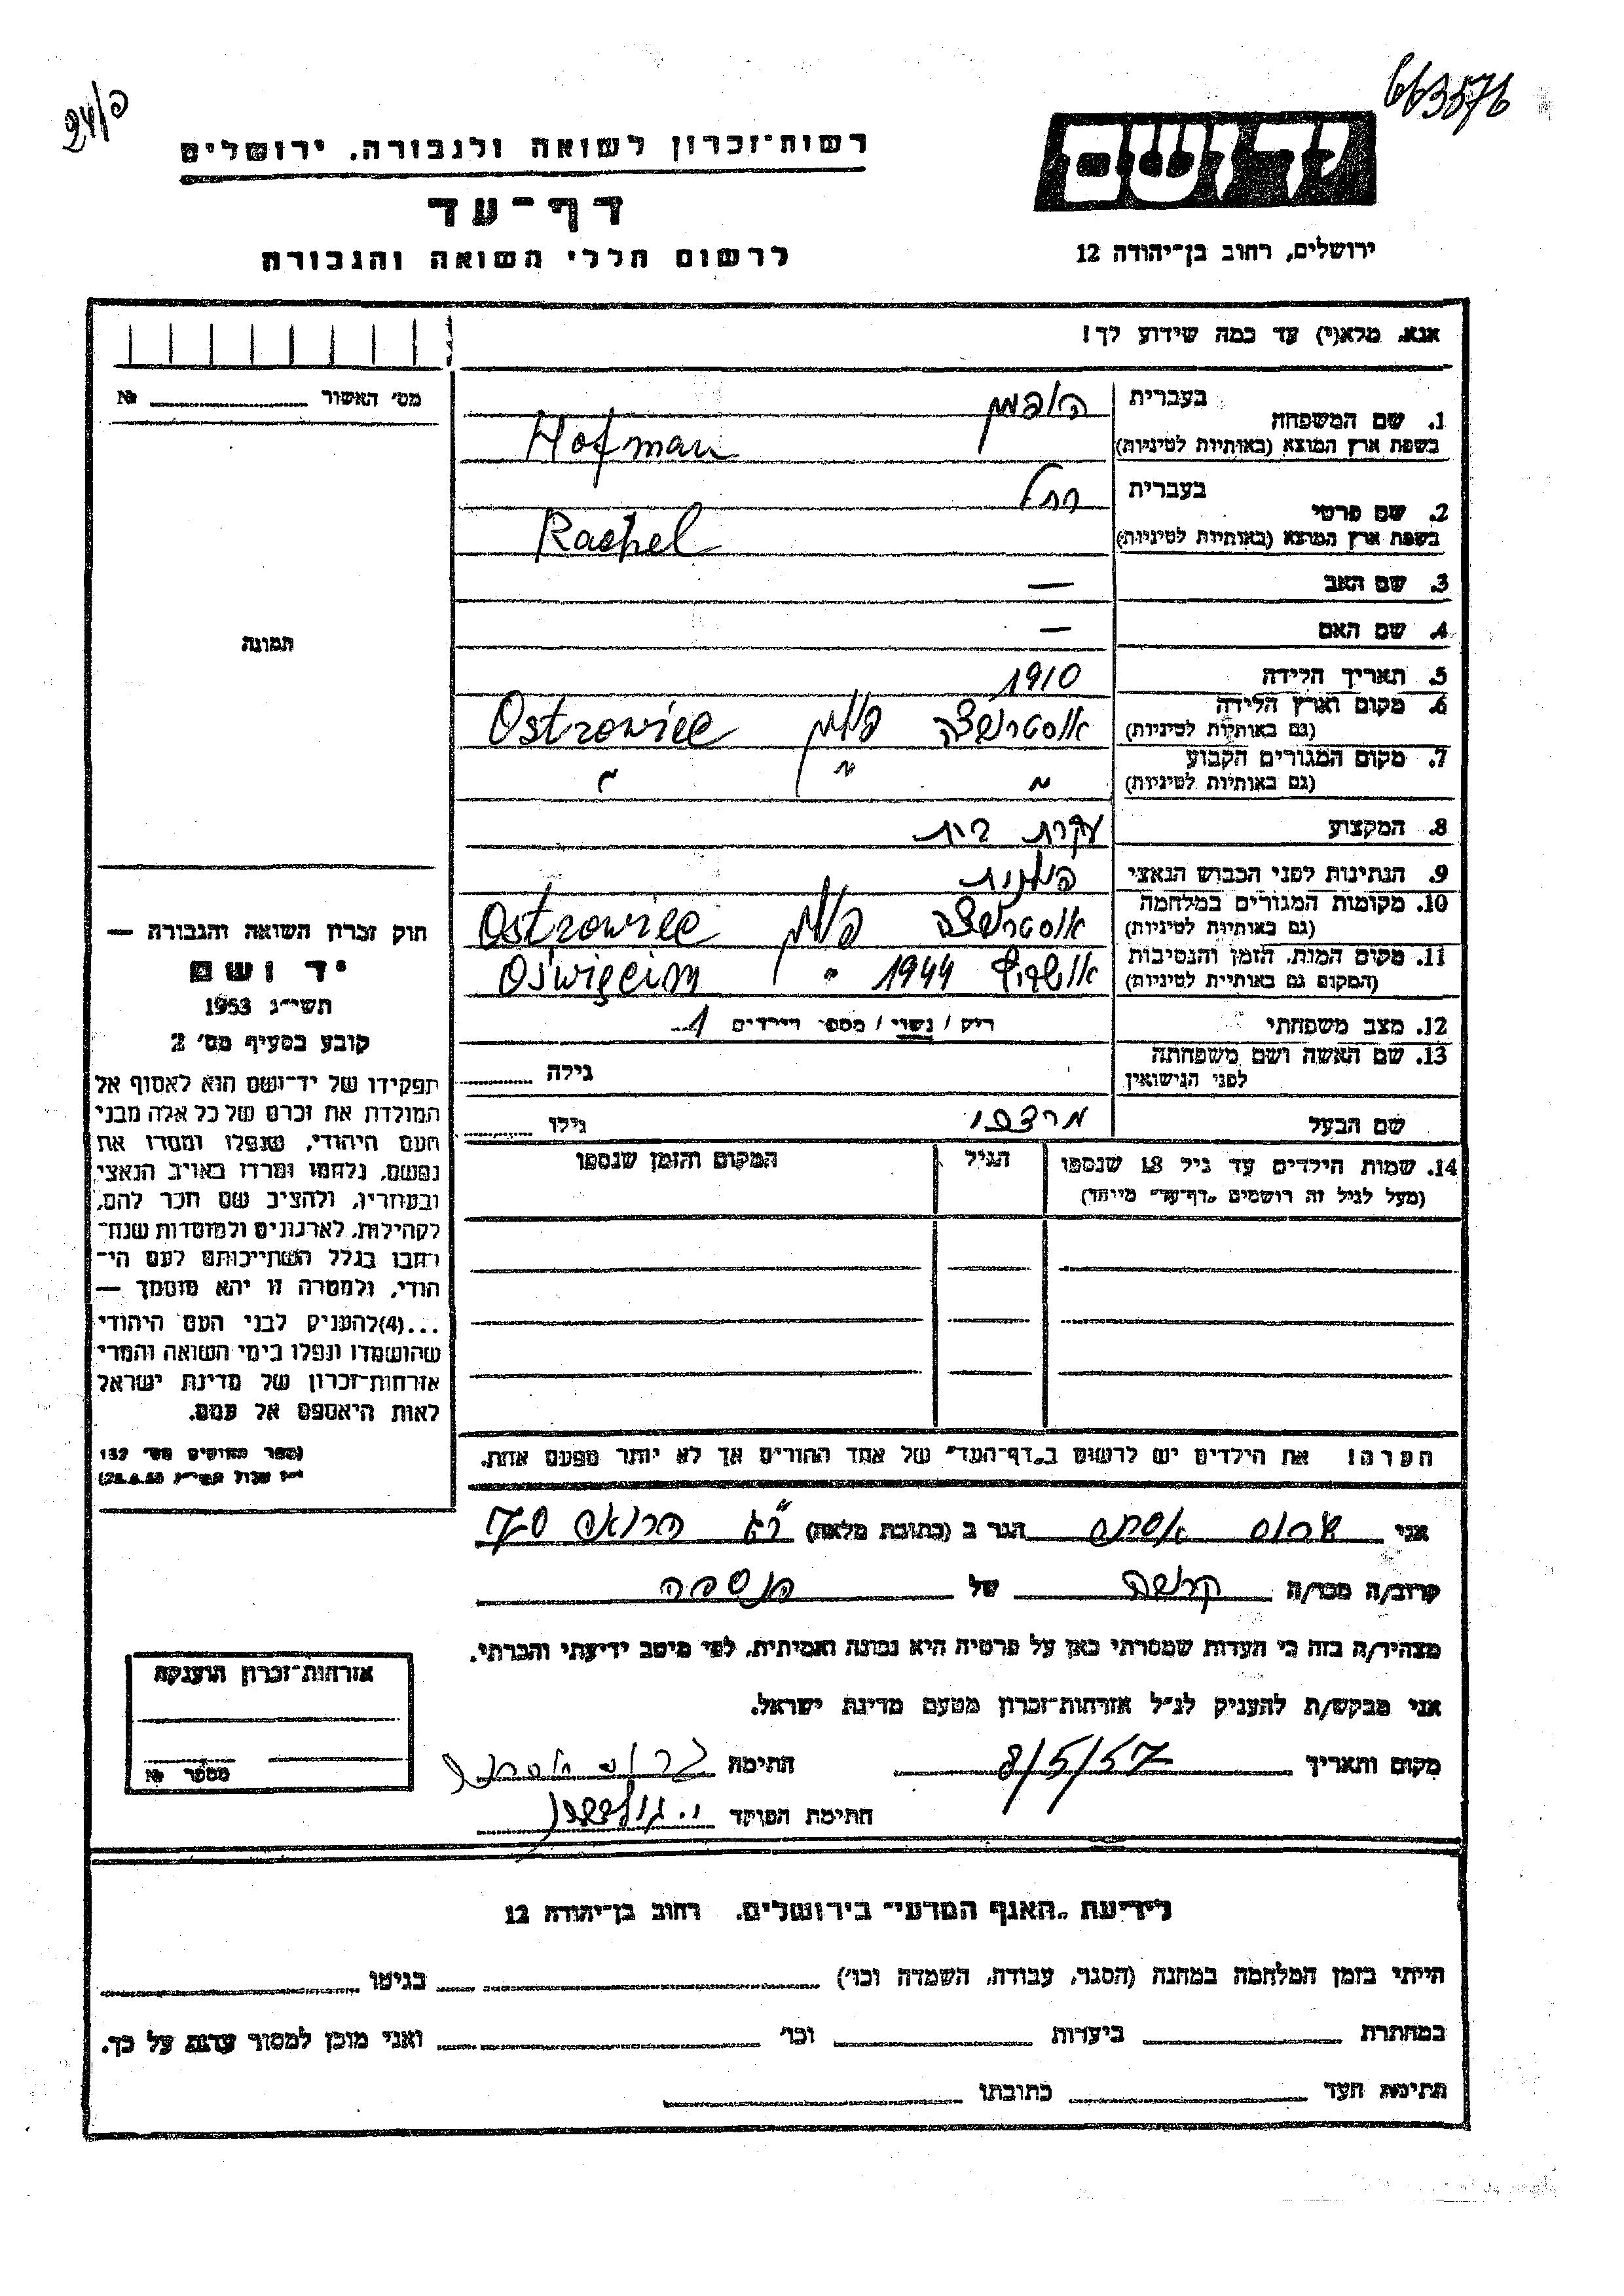 663576
24/פ
יד ושם
רשות־זכרון לשואה ולגבורה. ירושלים
דף־עד
לרשום חללי השואה והגבורה
ירושלים, רחוב בן־יהודה 12
אנא, מלא(י) עד כמה שידוע לך!
מס׳ האשור №
1. שם המשפחה בעברית הופמן
בשפת ארץ המוצא (באותיות לטיניות) Hofman
2. שם פרטי בעברית רחל
בשפת ארץ המוצא (באותיות לטיניות) Rachel
3. שם האב —
4. שם האם —
תמונה
5. תאריך הלידה 1910
6. מקום וארץ הלידה אוסטרובצה פולין Ostrowiec
(גם באותיות לטיניות)
7. מקום המגורים הקבוע " " "
(גם באותיות לטיניות)
8. המקצוע עקרת בית
9. הנתינות לפני הכבוש הנאצי פולנית
10. מקומות המגורים במלחמה אוסטרובצה פולין Ostrowiec
(גם באותיות לטיניות)
11. מקום המות, הזמן והנסיבות אושויץ 1944 " Oświęcim
(המקום גם באותיות לטיניות)
12. מצב משפחתי רוק / נשוי / מספר הילדים 1
13. שם האשה ושם משפחתה גילה
לפני הנישואין
שם הבעל מרדכי גילו
14. שמות הילדים עד גיל 18 שנספו הגיל המקום והזמן שנספו
(מעל לגיל זה רושמים „דף־עד" מיוחד)
חוק זכרון השואה והגבורה —
יד ושם
תשי״ג 1953
קובע בסעיף מס׳ 2
תפקידו של יד־ושם הוא לאסוף אל
המולדת את זכרם של כל אלה מבני
העם היהודי, שנפלו ומסרו את
נפשם, נלחמו ומרדו באויב הנאצי
ובעוזריו, ולהציב שם וזכר להם,
לקהילות, לארגונים ולמוסדות שנח־
רבו בגלל השתייכותם לעם הי־
הודי, ולמטרה זו יהא מוסמך —
...(4)להעניק לבני העם היהודי
שהושמדו ונפלו בימי השואה והמרי
אזרחות־זכרון של מדינת ישראל
לאות היאספם אל עמם.
(ספר החוקים מס׳ 132
י״ז אלול תשי״ג 28.8.53)
הערה! את הילדים יש לרשום ב„דף־העד" של אחד ההורים אך לא יותר מפעם אחת.
אני אסתר הגר ב (כתובת מלאה) ר״ג הרואה 70
קרוב/ה מכר/ה קרובה של הנספה
מצהיר/ה בזה כי העדות שמסרתי כאן על פרטיה היא נכונה ואמיתית, לפי מיטב ידיעתי והכרתי.
אני מבקש/ת להעניק לנ״ל אזרחות־זכרון מטעם מדינת ישראל.
מקום ותאריך 8/5/57 חתימה
חתימת הפוקד
אזרחות־זכרון הוענקה
מספר №
לידיעת „האגף המדעי" בירושלים. רחוב בן־יהודה 12
הייתי בזמן המלחמה במחנה (הסגר, עבודה, השמדה וכו׳) בגיטו
במחתרת ביערות וכו׳ ואני מוכן למסור עדות על כך.
חתימת העד כתובתו